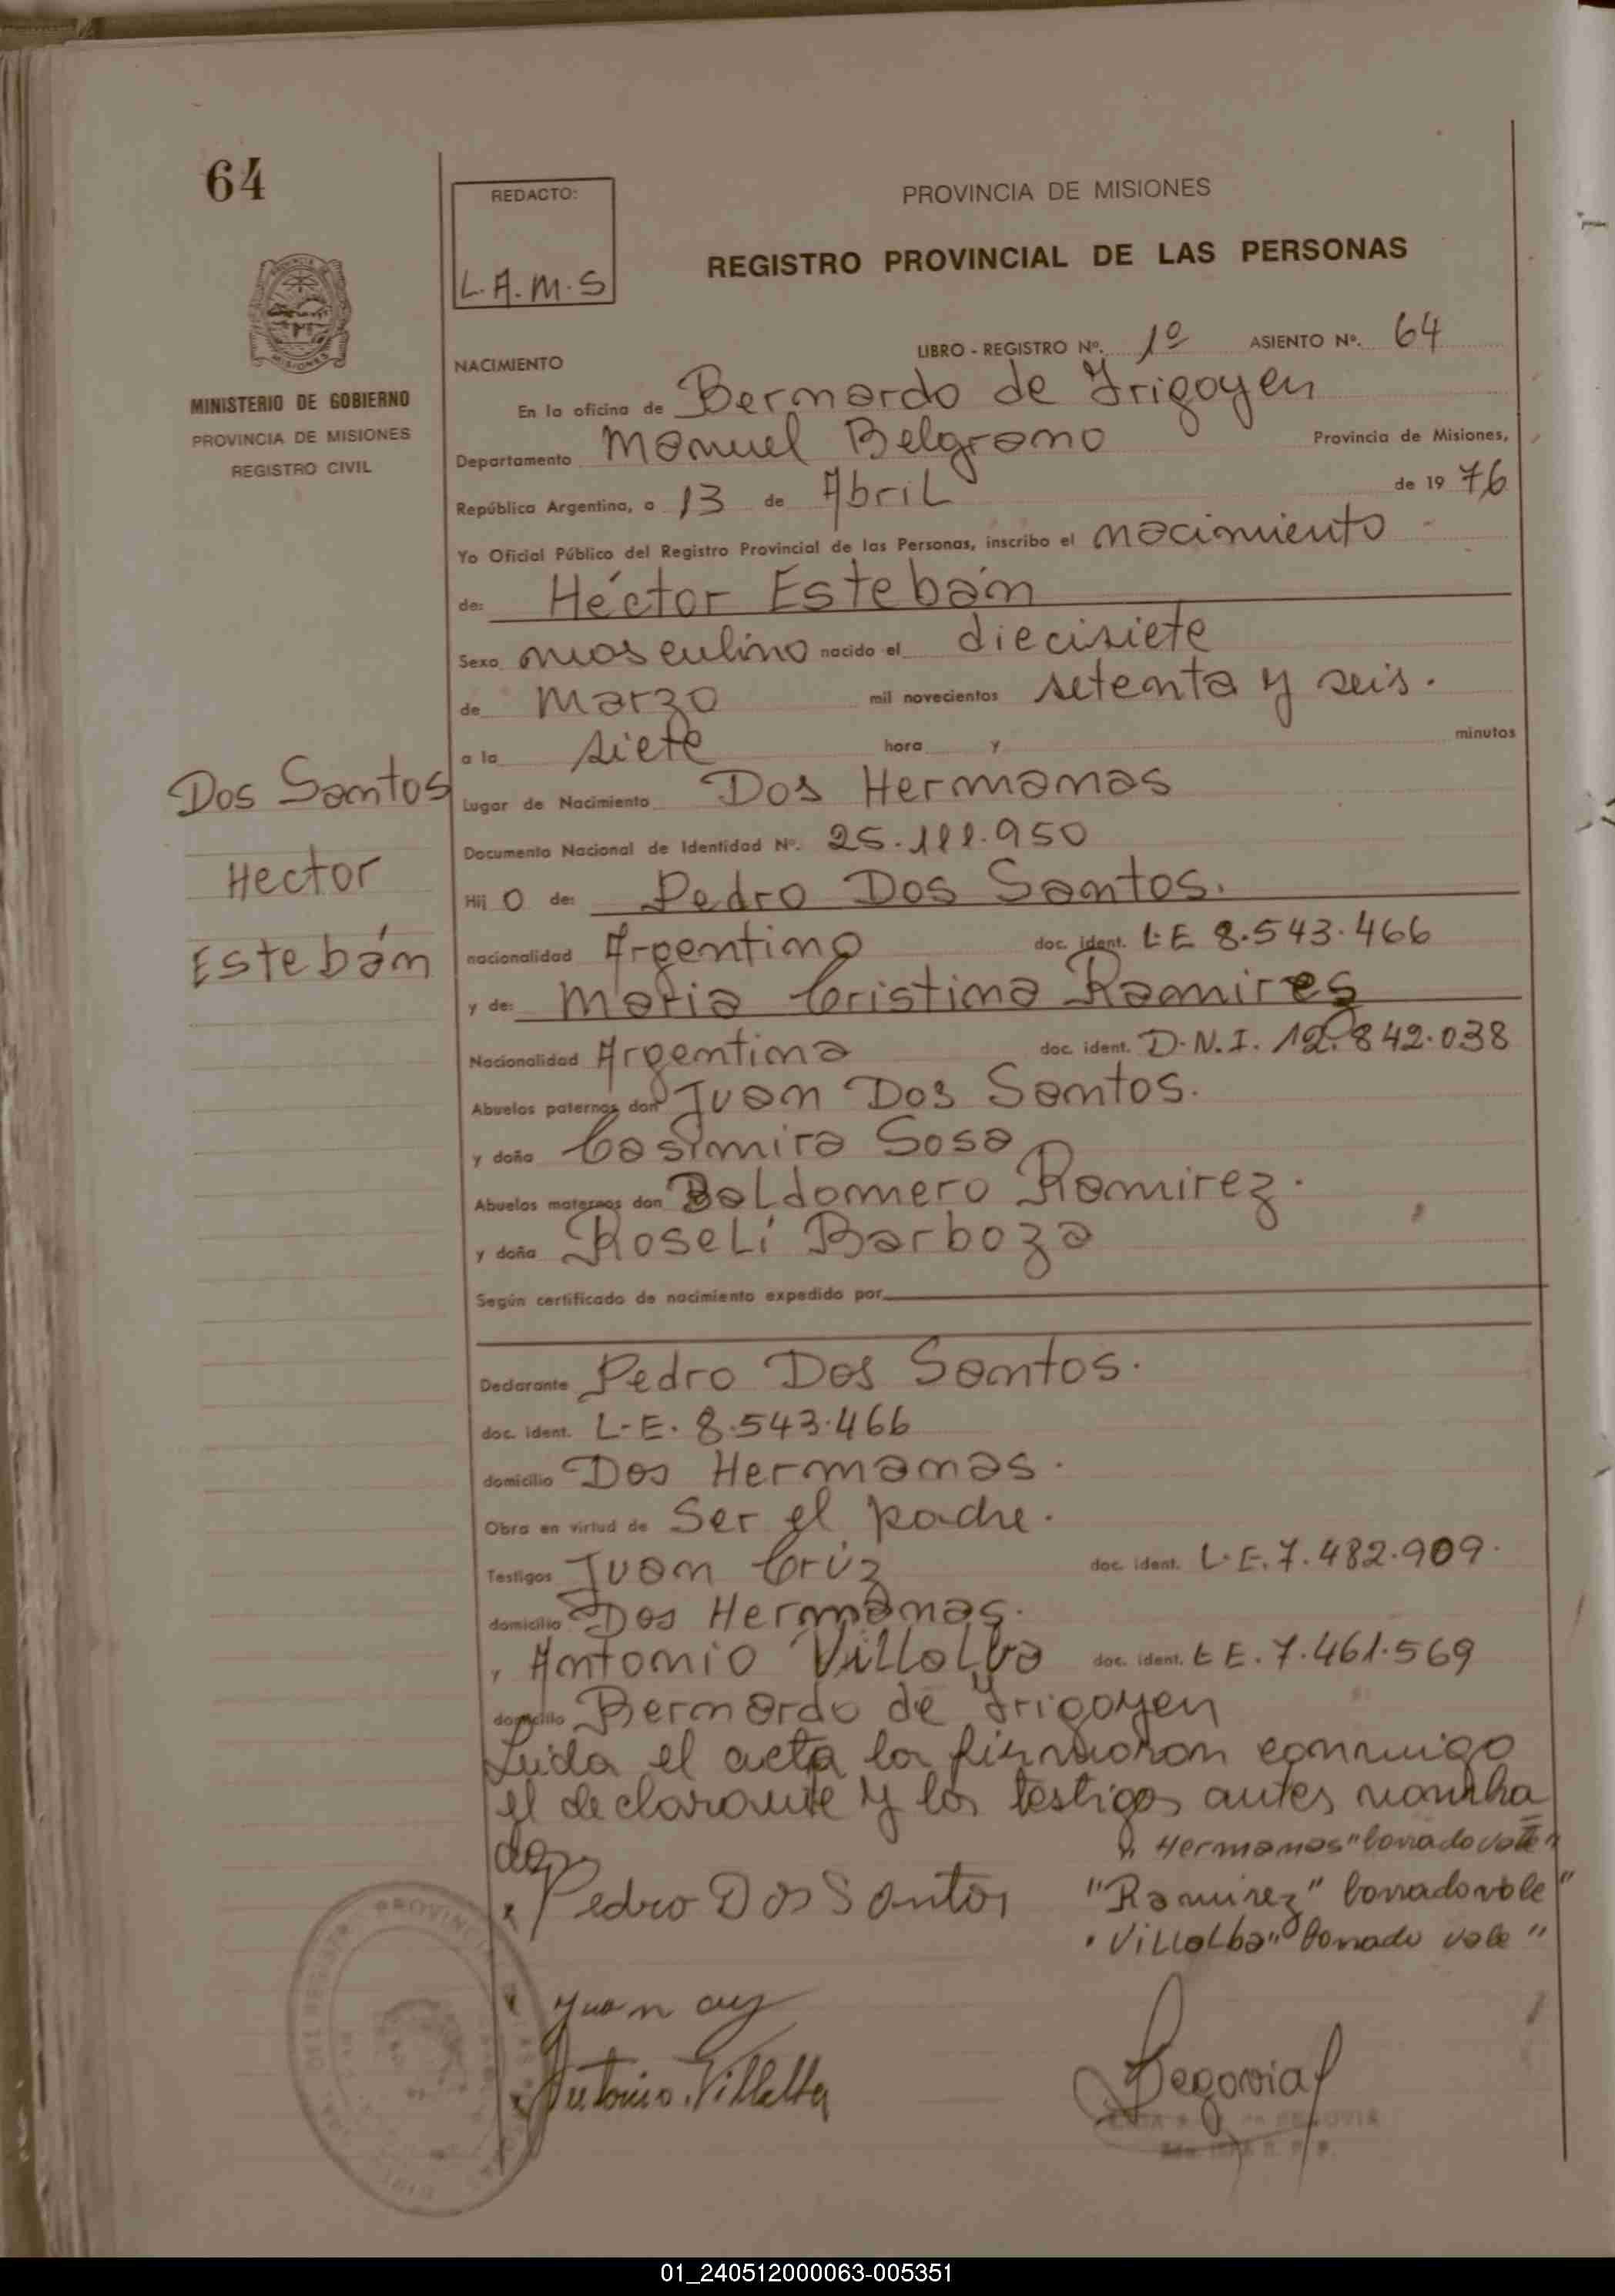 64
REDACTO:
L.A.M.S
PROVINCIA DE MISIONES
REGISTRO PROVINCIAL DE LAS PERSONAS
MINISTERIO DE GOBIERNO
PROVINCIA DE MISIONES
REGISTRO CIVIL
LIBRO - REGISTRO Nº. 1º ASIENTO Nº. 64
NACIMIENTO
En la oficina de Bernardo de Irigoyen
Departamento Manuel Belgrano Provincia de Misiones,
República Argentina, a 13 de Abril de 19 76
Yo Oficial Público del Registro Provincial de las Personas, inscribo el nacimiento
de: Héctor Estebán
Sexo masculino nacido el diecisiete
de Marzo mil novecientos setenta y seis.
a la siete hora y minutos
Dos Santos
Hector
Estebán
Lugar de Nacimiento Dos Hermanas
Documento Nacional de Identidad Nº. 25.111.950
Hij o de: Pedro Dos Santos.
nacionalidad Argentino doc. ident. L.E 8.543.466
y de: Maria Cristina Ramires
Nacionalidad Argentina doc. ident. D.N.I. 12.842.038
Abuelos paternos don Juan Dos Santos.
y doña Casimira Sosa
Abuelos maternos don Baldomero Ramirez.
y doña Roselí Barboza
Según certificado de nacimiento expedido por
Declarante Pedro Dos Santos.
doc. ident. L.E. 8.543.466
domicilio Dos Hermanas.
Obra en virtud de Ser el padre.
Testigos Juan Crúz doc. ident. L.E. 7.482.909.
domicilio Dos Hermanas.
y Antonio Villalba doc. ident. L E. 7.461.569
domicilio Bernardo de Irigoyen
Leida el acta la firmaron conmigo
el declarante y los testigos antes nombra
dos
Hermanas "borrado vale"
"Ramirez" borrado vale"
"Villalba" borrado vale"
Pedro Dos Santos
Juan
Antonio Villalba
Segovia
01_240512000063-005351